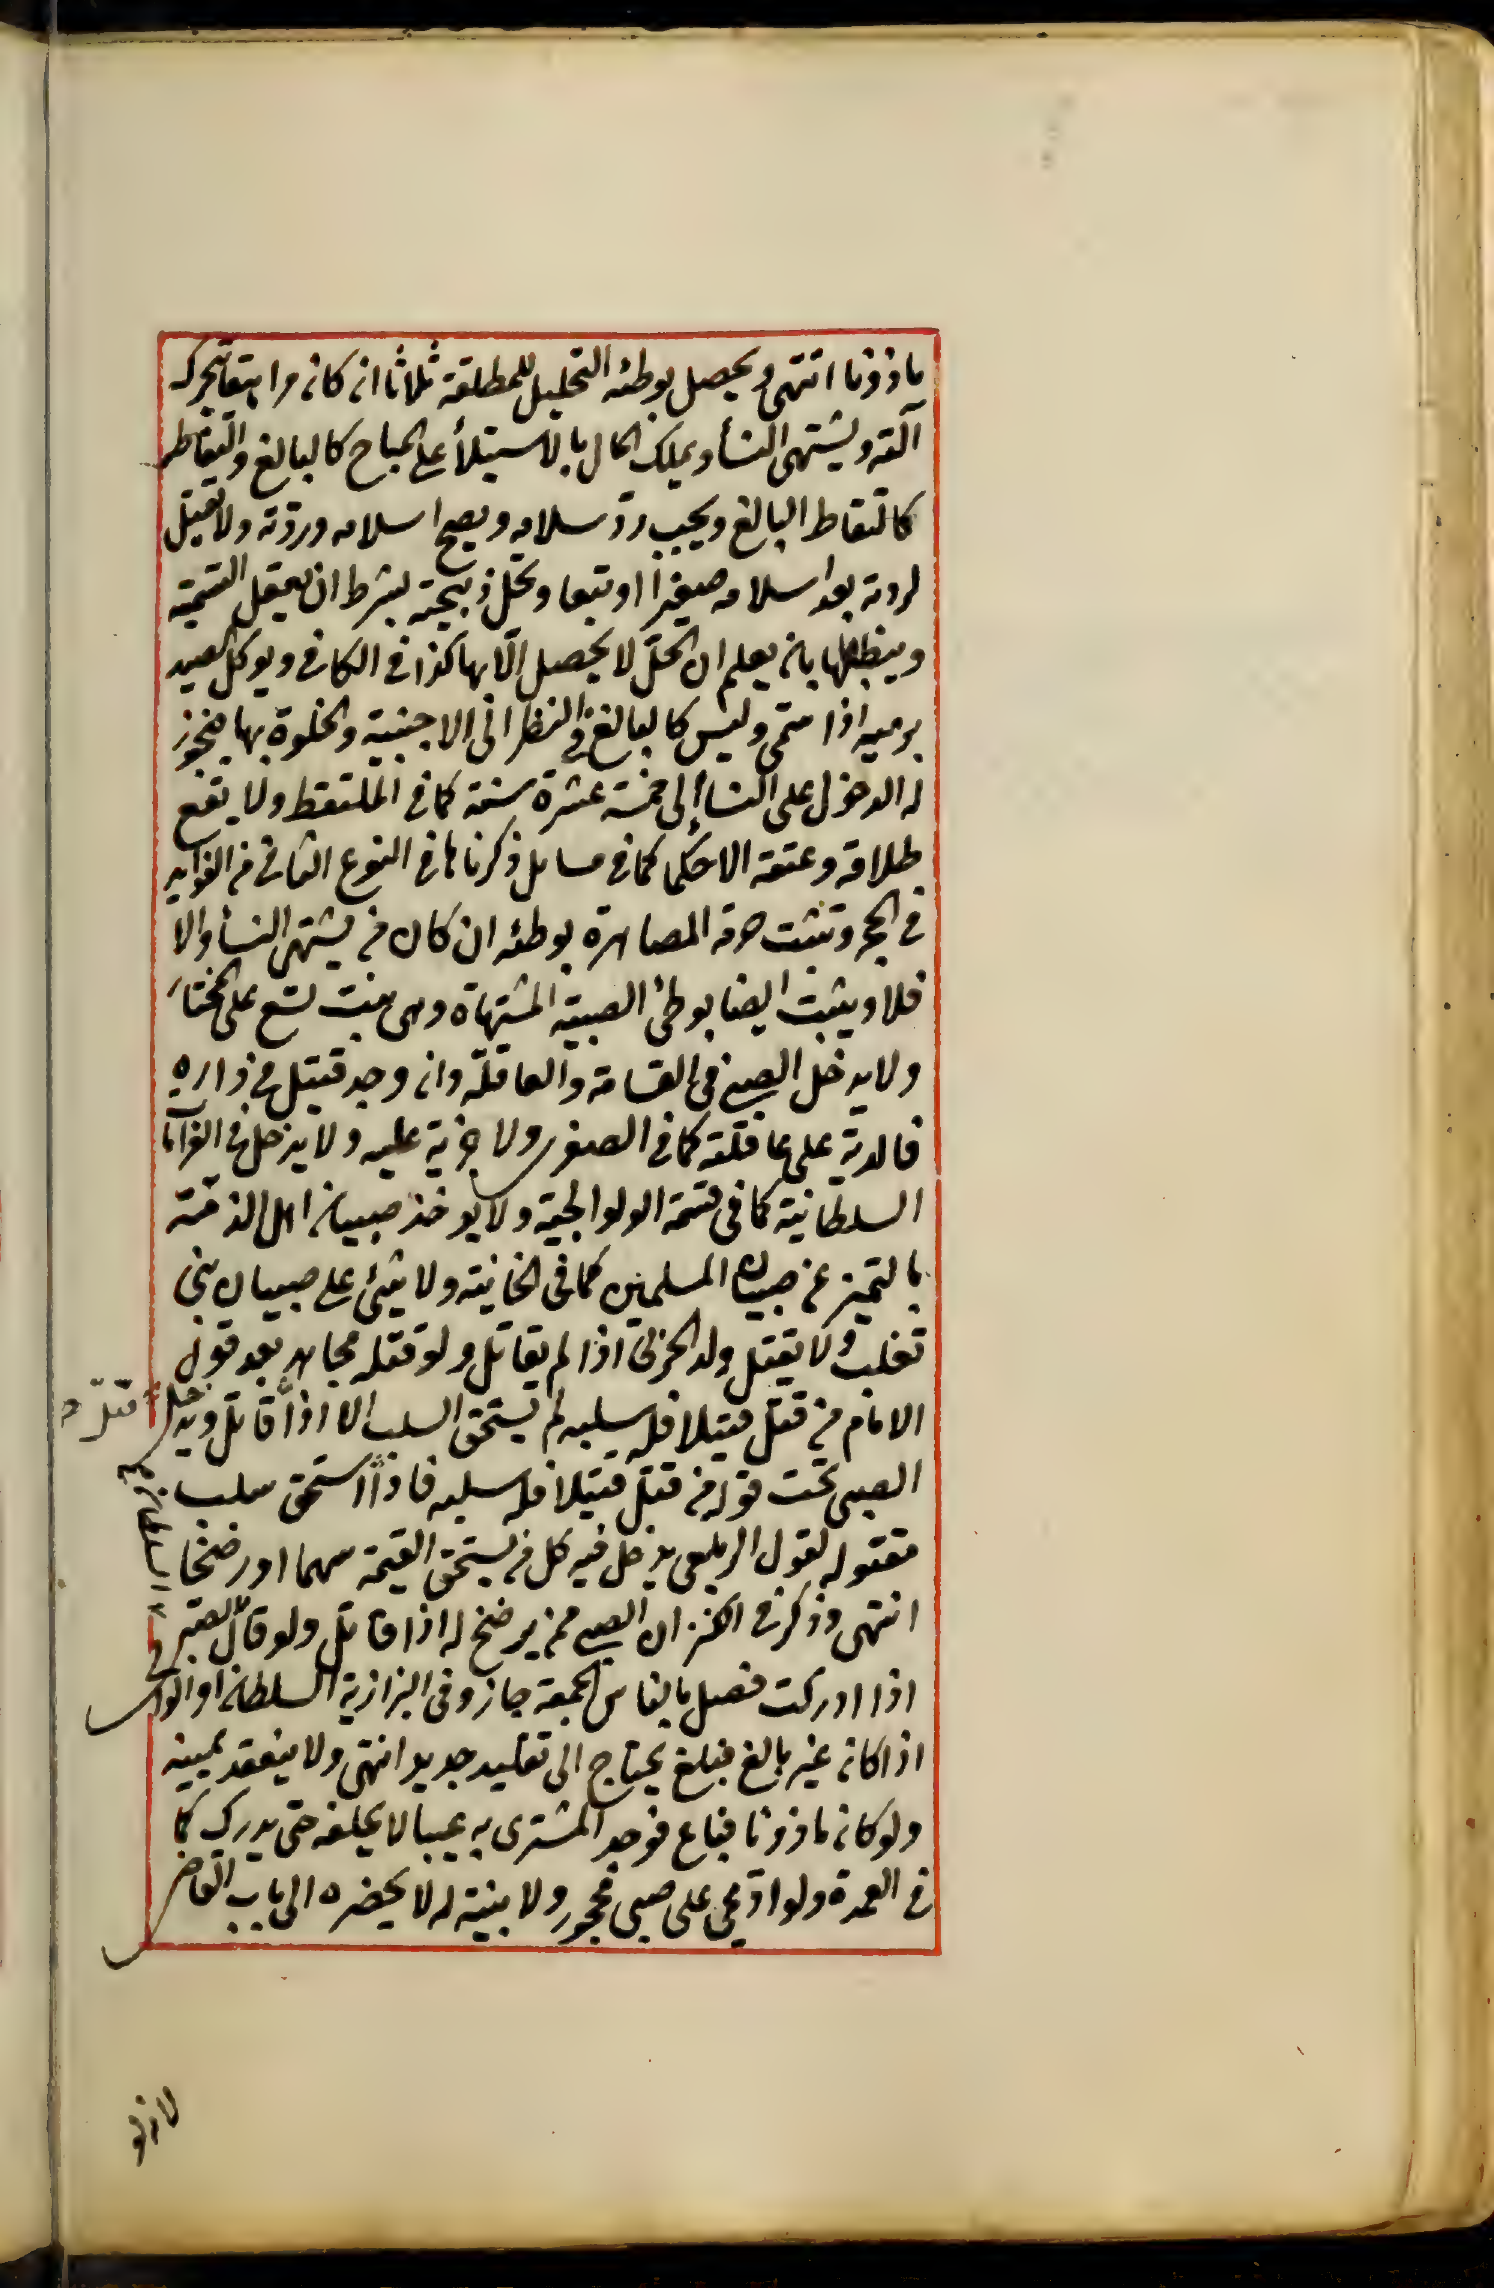 ماذونا انتهى ويحصل بوطئه التحليل للمطلقة ثلاثا ان كان مراهقا يتحرك
آلته ويشتهى النسأ ويملك المال بالاستيلأ على المباح كالبالغ والتقاطه
كالتقاط البالغ ويجب ردّ سلامه ويصح اسلامه وردّته ولا يقتل
لردته بعد اسلامه صغيرا او تبعا وتحل ذبيحته بشرط ان يعقل التسمية
ويضبطها بان يعلم ان الحلّ لا يحصل الّا بها كذا فى الكافى ويوكل الصيد
برميه اذا سمّى وليس كالبالغ فى النظر الى الاجنبية والخلوة بها فيجوز
له الدخول على النسأ إلى خمسة عشرة سنة كما فى الملتقط ولا يقع
طلاقه وعتقه الا حكما كما فى مسايل ذكرناها فى النوع الثانى من الفوايد
فى الحجر وتثبت حرمة المصاهرة بوطئه ان كان من يشتهى النسأ والا
فلا ويثبت ايضا بوطئ الصبية المشتهاة وهى بنت تسع على المختار
ولا يدخل الصبى فى القسامة والعاقلة وان وجد قتيل فى داره
فالدية على عاقلته كما فى الصغرى ولا جزية عليه ولا يدخل فى الغرامات
السلطانية كما فى قسمة الولوالجية ولا يوخذ صبيان اهل الذمّة
بالتميز عن صبيان المسلمين كما فى الخانية ولا شيئ على صبيان بنى
تغلب ولا يقتل ولد الحربى اذا لم يقاتل ولو قتله مجاهد بعد قول
الامام من قتل قتيلا فله سلبه لم يستحق السلب الا اذا قاتل ويدخل
الصبى تحت قوله من قتل قتيلا فله سلبه فاذا استحق سلب
مقتوله لقول الزيلعى يدخل فيه كل من يستحق الغنيمة سهما او رضخا
انتهى وذكر فى الكنز ان الصبى ممن يرضخ له اذا قاتل ولو قال السلطان لصبى
اذا ادركت فصل بالناس الجمعة جاز وفى البزازية السلطان او الوالى
اذا كان غير بالغ فبلغ يحتاج الى تقليد جديد انتهى ولا ينعقد يمينه
ولو كان ماذونا فباع فوجد المشترى به عيبا لا يحلفه حتى يدرك كما
فى العمدة ولو ادّعى على صبى محجور ولا بينة له لا يحضره الى باب القاضى
قتل
لانه لو